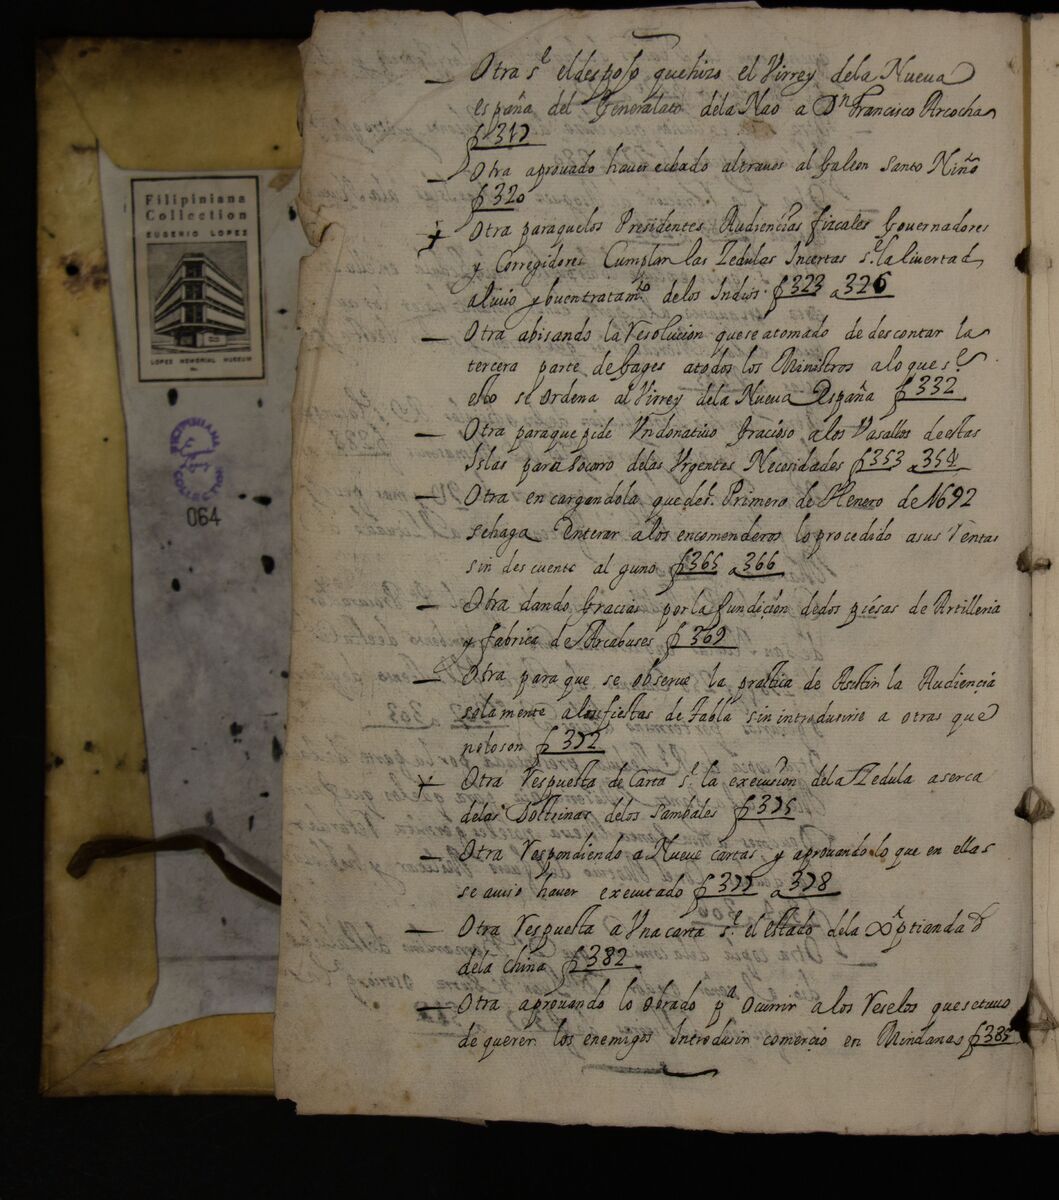 Filipiniana
Collection
EUGENIO LOPEZ
LOPEZ MEMORIAL MUSEUM
FILIPINIANA
COLLECTION
064
Otra s.e el despojo que hizo el Virrey dela Nueva
españa del Generalato dela Nao a Dn Francisco Arcocha
f 317
Otra aprouado hauer echado altraues al Galeon Santo Niño
f 320
Otra paraquelos Presidentes Audiencias fiscales Gouernadores
y Corregidores Cumplan las Zedulas Incertas s.e la liuertad
aliuio y buentratam.to delos Indios. f 323 a 326
Otra abisando la resolucion quese atomado de descontar la
tercera parte de Gages atodos los Ministros alo que s.e
esto se ordena al Virrey dela Nueva España f 332
Otra paraque pide Vn donatiuo Gracioso alos Vasallos de estas
Islas para socorro delas Vrgentes Necesidades f 353 a 354
Otra en cargandola que des.e Primero de Henero de 1692
sehaga Enterar alos encomenderos lo procedido asus Rentas
sin des cuento al guno f 365 a 366
Otra dando Gracias por la fundicion dedos piesas de Artilleria
y fabrica de Arcabuses f 369
Otra para que se obserue la practica de Asistir la Audiencia
solamente alas fiestas de tabla sin introdusirse a otras que
noloson f 372
Otra Respuesta de Carta s.e la execusion dela Zedula aserca
delas Dottrinas delos Sambales f 375
Otra Respondiendo a Nueue cartas y aprouando lo que en ellas
se auiso hauer executado f 377 a 378
Otra Respuesta a Vna carta s.e el estado dela Xptiandad
dela china f 382
Otra aprouando lo obrado pa ocurrir a los Reselos que se tuuo
de querer los enemigos Introdusir comercio en Mindanao f 385